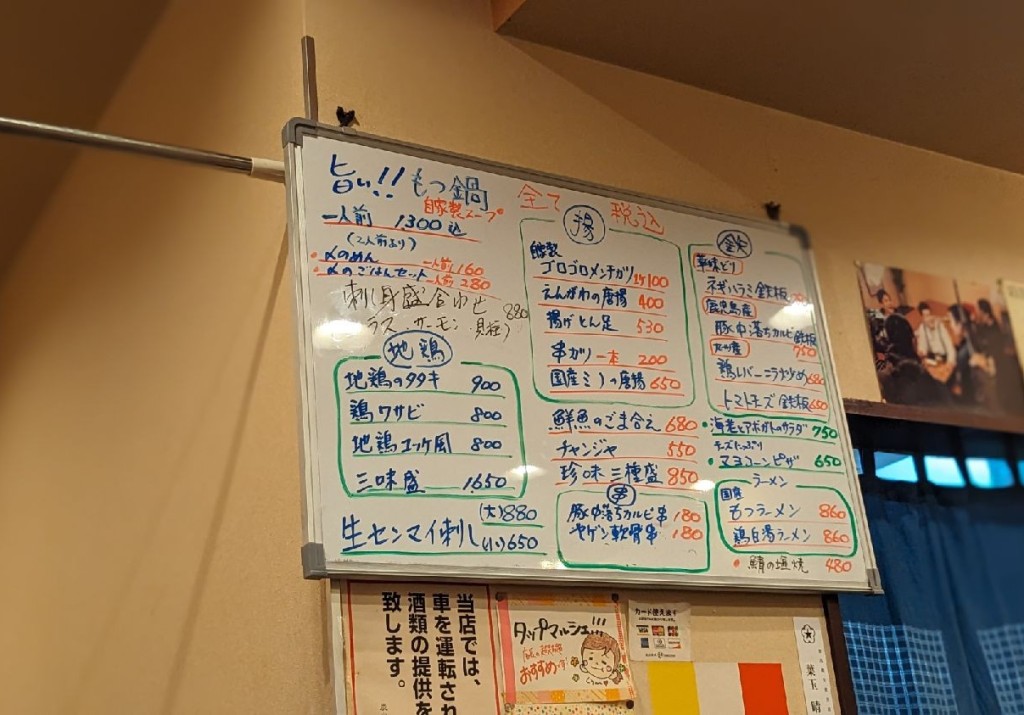 旨い!! もつ鍋
自家製スープ
一人前 1300込
(2人前より)
・〆のめん 一人前160
・〆のごはんセット 一人前280
刺し身盛合わせ 880
地鶏
地鶏のタタキ 900
鶏ワサビ 800
地鶏ユッケ風 800
三味盛 1,650
生センマイ刺し (大)880
(小)650
全て税込
揚
自家製
ゴロゴロメンチカツ
えんがわの唐揚 400
揚げとん足 530
串カツ 一本 200
国産ミノの唐揚 650
鮮魚のごま合え 680
チャンジャ 550
珍味三種盛 850
串
豚中落ちカルビ串 180
ヤゲン軟骨串 180
鉄
華味どり
ネギハラミ鉄板
鹿児島産
豚中落ちカルビ鉄板 750
鶏レバーニラ炒め 680
トマトチーズ鉄板 650
・海老とアボガドのサラダ 750
チーズたっぷり
・マヨコーンピザ 650
ラーメン
国産
もつラーメン 860
鶏白湯ラーメン 860
・鯖の塩焼 480
当店では、
車を運転され
酒類の提供を
致します。
タップマルシェ!!!
おすすめ
カード使え〼
VISA